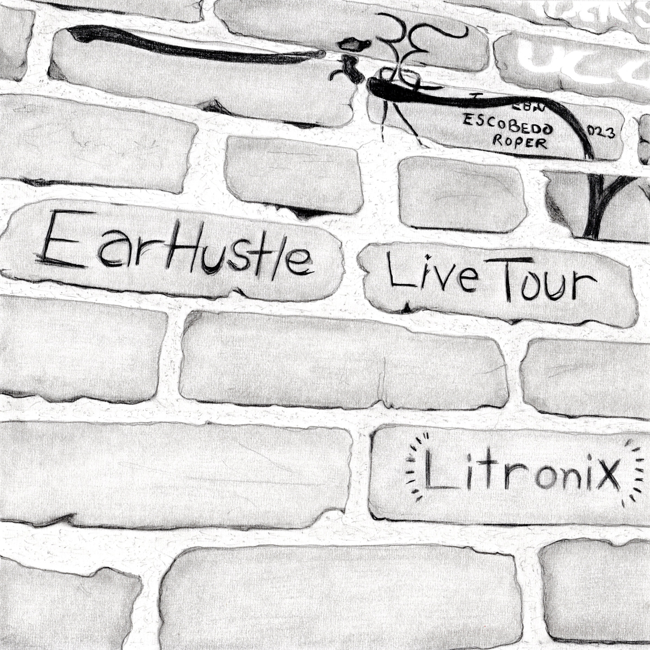 UCC
ESCOBEDO
023
ROPER
EarHustle
Live Tour
Litronix